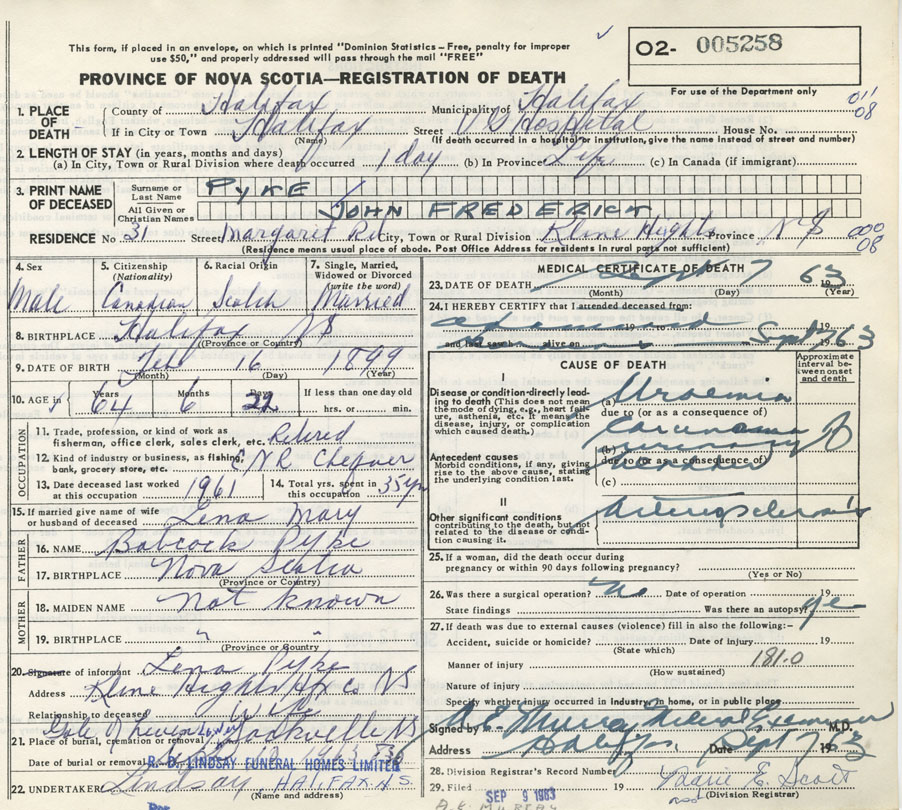 This form, if placed in an envelope, on which is printed "Dominion Statistics – Free, penalty for improper
use $50," and properly addressed will pass through the mail "FREE"
PROVINCE OF NOVA SCOTIA—REGISTRATION OF DEATH
O2- 005258
For use of the Department only
1. PLACE OF DEATH County of Halifax Municipality of Halifax 011 08
If in City or Town Halifax Street V G Hospital House No.
(Name) (If death occurred in a hospital or institution, give the name instead of street and number)
2. LENGTH OF STAY (in years, months and days)
(a) In City, Town or Rural Division where death occurred 1 day (b) In Province Life (c) In Canada (if immigrant)
3. PRINT NAME OF DECEASED Surname or Last Name PYKE
All Given or Christian Names JOHN FREDERICK
RESIDENCE No. 31 Street Margaret Rd City, Town or Rural Division Kline Heights Province N S 000 08
(Residence means usual place of abode. Post Office Address for residents in rural parts not sufficient)
4. Sex 5. Citizenship (Nationality) 6. Racial Origin 7. Single, Married, Widowed or Divorced (write the word)
Male Canadian Scotch Married
8. BIRTHPLACE Halifax N S
(Province or Country)
9. DATE OF BIRTH Feb 16 1899
(Month) (Day) (Year)
10. AGE in Years Months Days If less than one day old
64 6 22 hrs. or min.
OCCUPATION
11. Trade, profession, or kind of work as fisherman, office clerk, sales clerk, etc. Retired
12. Kind of industry or business, as fishing, bank, grocery store, etc. C.N.R.
13. Date deceased last worked at this occupation 1961 14. Total yrs. spent in this occupation 35 yrs
15. If married give name of wife or husband of deceased Lena Mary
FATHER
16. NAME Babcock Pyke
17. BIRTHPLACE Nova Scotia
(Province or Country)
MOTHER
18. MAIDEN NAME Not known
19. BIRTHPLACE " "
(Province or Country)
20. Signature of informant Lena Pyke
Address Kline Heights Hfx Co N S
Relationship to deceased Wife
21. Place of burial, cremation or removal Gate of Heaven Sackville N S
Date of burial or removal
R. D. LINDSAY FUNERAL HOMES LIMITED
22. UNDERTAKER Lindsay HALIFAX N.S.
(Name and address)
MEDICAL CERTIFICATE OF DEATH
23. DATE OF DEATH Sept 7 1963
(Month) (Day) (Year)
24. I HEREBY CERTIFY that I attended deceased from:
examined 19 to 19
and last saw h alive on Sept 7 1963
CAUSE OF DEATH
Approximate interval between onset and death
I
Disease or condition directly leading to death (This does not mean the mode of dying, e.g., heart failure, asthenia, etc. It means the disease, injury, or complication which caused death.)
(a) Uraemia
due to (or as a consequence of)
Antecedent causes
Morbid conditions, if any, giving rise to the above cause, stating the underlying condition last.
(b) Carcinoma of urinary bladder
due to (or as a consequence of)
(c)
II
Other significant conditions contributing to the death, but not related to the disease or condition causing it.
Arteriosclerosis
25. If a woman, did the death occur during pregnancy or within 90 days following pregnancy?
(Yes or No)
26. Was there a surgical operation? No Date of operation 19
State findings Was there an autopsy? Yes
27. If death was due to external causes (violence) fill in also the following:–
Accident, suicide or homicide? Date of injury 19
(State which)
Manner of injury 181.0
(How sustained)
Nature of injury
Specify whether injury occurred in industry, in home, or in public place
Signed by A E Murray Medical Examiner M.D.
Address Halifax Date Sept 7 1963
28. Division Registrar's Record Number
29. Filed SEP 9 1963 19 E. Scott
(Division Registrar)
A.K. MURRAY